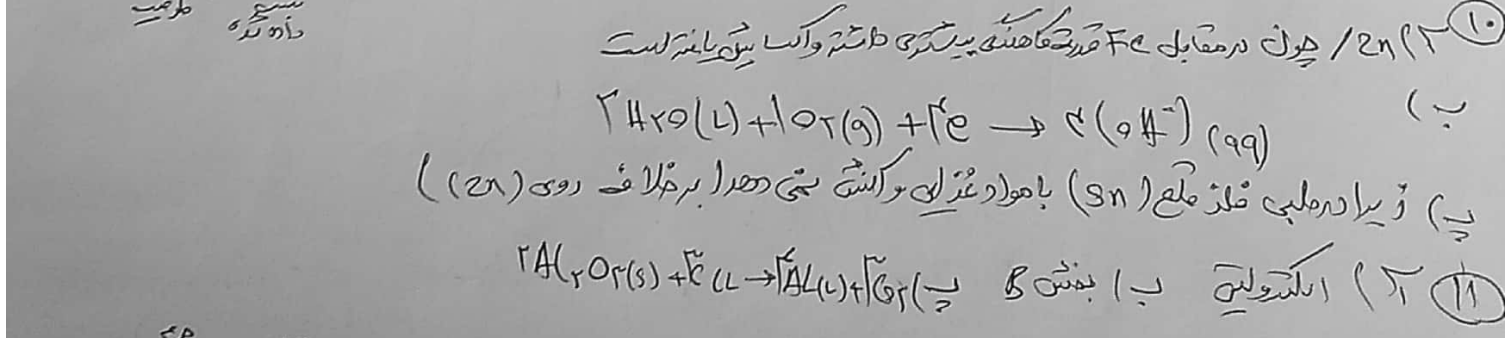 داده شده
۱۰ آ) Zn / چون در مقابل Fe قدرت کاهندگی بیشتری داشته و اکسایش یافته است
ب) ۲H۲O(L) + ۱O۲(g) + ۴e → ۴(OH⁻)(aq)
پ) زیرا در حلبی فلز قلع (Sn) با مواد غذایی واکنش نمی دهد (برخلاف روی (Zn))
۱۱ آ) الکترولیتی ب) بخش B پ) ۲Al۲O۳(s) + ۳C(s) → ۴Al(L) + ۳CO۲(